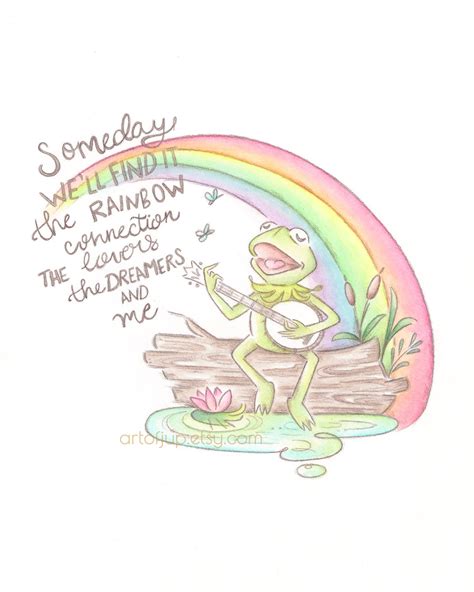 Someday
WE'LL FIND IT
the RAINBOW
connection
THE lovers
the DREAMERS
AND
me
artofjup.etsy.com